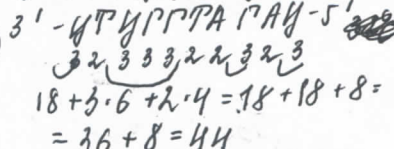 3' - ЦТЦГГТА ГАЦ - 5'
3 2 3 3 3 2 2 3 2 3
18 + 3·6 + 2·4 = 18 + 18 + 8 =
= 36 + 8 = 44